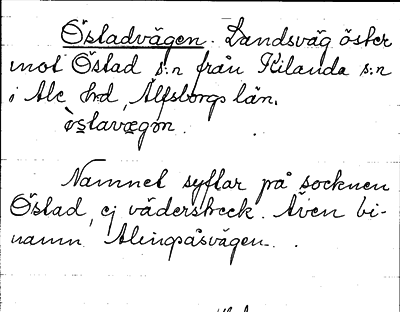 Östadvägen. Landsväg öster
mot Östad s:n från Kilanda s:n
i Ale hrd, Älfsborgs län.
òstavægən.
Namnet syftar på socknen
Östad, ej väderstreck. Även bi-
namn Alingsåsvägen.